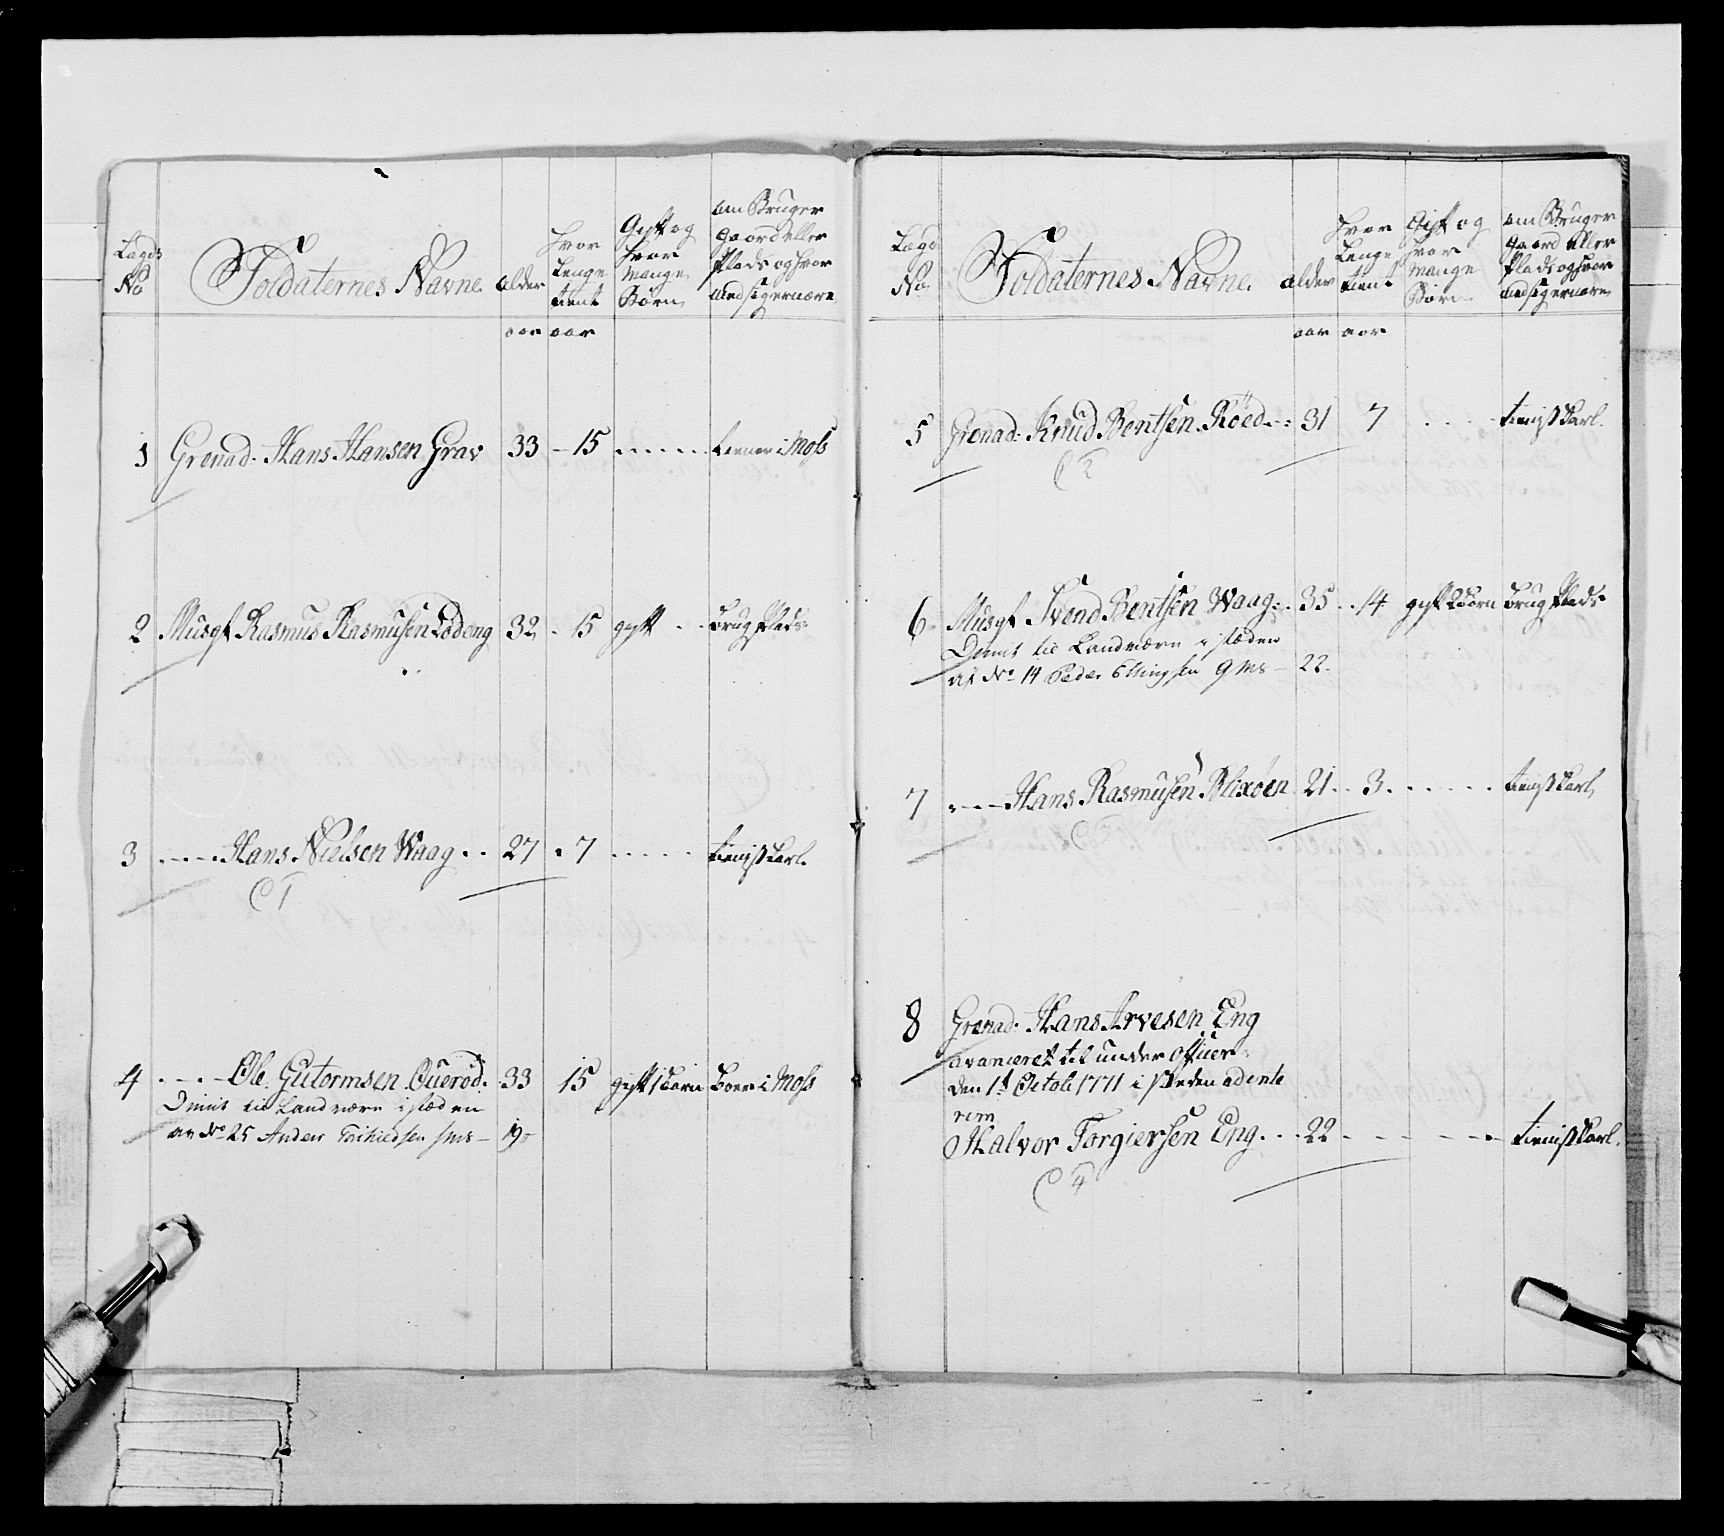 Lægds No
Soldaternes Navne
alder
aar
Hvor Lenge tient
aar
Gift og Hvor Mange Børn
om Bruger Gaord eller Plads og hvor med sig ernære
1 Grenad: Hans Hansen Grav 33 - 15 ...... tiener i Moss
2 Musqt Rasmus Rasmusen Lødeng 32 . 15 gift .. brug Plads
3 ..... Hans Nielsen Waag .. 27 . 7 ..... tienist karl.
4 .... Ole Gutormsen Ouerød. 33 15 gift 1 barn boer i Moss
Dimit til Landværn i stæden
av No 25 Anders
19
Lægds No
Soldaternes Navne.
alder
aar
Hvor Lenge tient
aar
Gift og Hvor Mange Børn
om Bruger Gaord eller Plads og hvor med sig ernære
5 Grenad: Knud Bentsen Röed..: 31 7 .... tienist karl.
6. Musqt Svend Bentsen Waag:. 35 .. 14 gift 2 børn brug Plads
Dimit til Landværn i stæden
af No 14 Peder Ellingsen G Ms - 22.
7 .... Hans Rasmusen Blixöen 21 .. 3 ...... tienist karl,
8 Grenad. Hans Arvesen Eng
avanceret til under officer
den 1t Octob 1771 i steden adente
rim
Halvor Torgiersen Eng ... 22 - - - - - tienist karl.